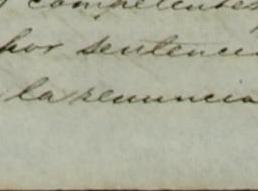 competentes
por sentencia
la renuncia